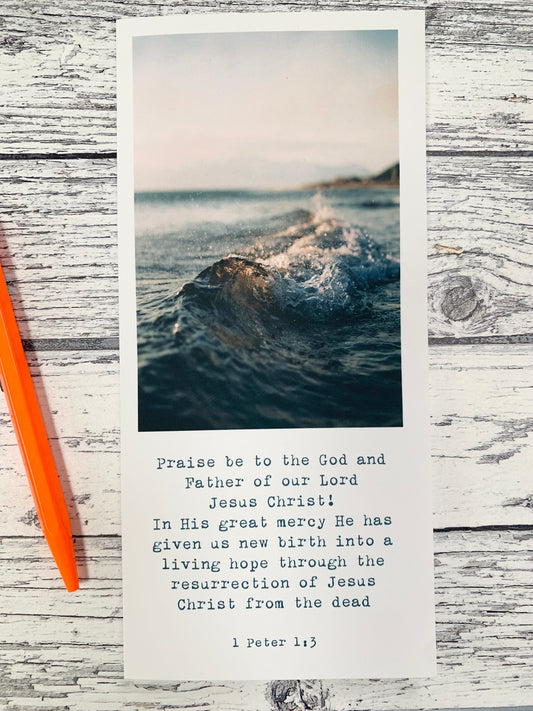 Praise be to the God and
Father of our Lord
Jesus Christ!
In His great mercy He has
given us new birth into a
living hope through the
resurrection of Jesus
Christ from the dead
1 Peter 1:3